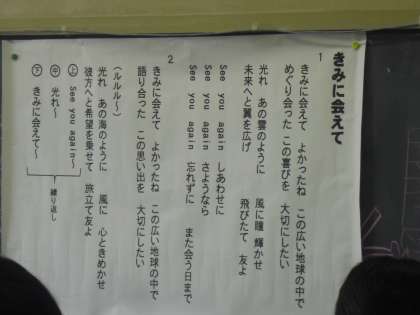 きみに会えて
1
きみに会えて よかったね この広い地球の中で
めぐり会った この喜びを 大切にしたい
光れ あの雲のように 風に瞳 輝かせ
未来へと翼を広げ 飛びたて 友よ
See you again しあわせに
See you again さようなら
See you again 忘れずに また会う日まで
2
きみに会えて よかったね この広い地球の中で
語り合った この思い出を 大切にしたい
(ルルル~)
光れ あの海のように 風に 心ときめかせ
彼方へと希望を乗せて 旅立て友よ
上 See you again~
中 光れ~
下 きみに会えて~
繰り返し